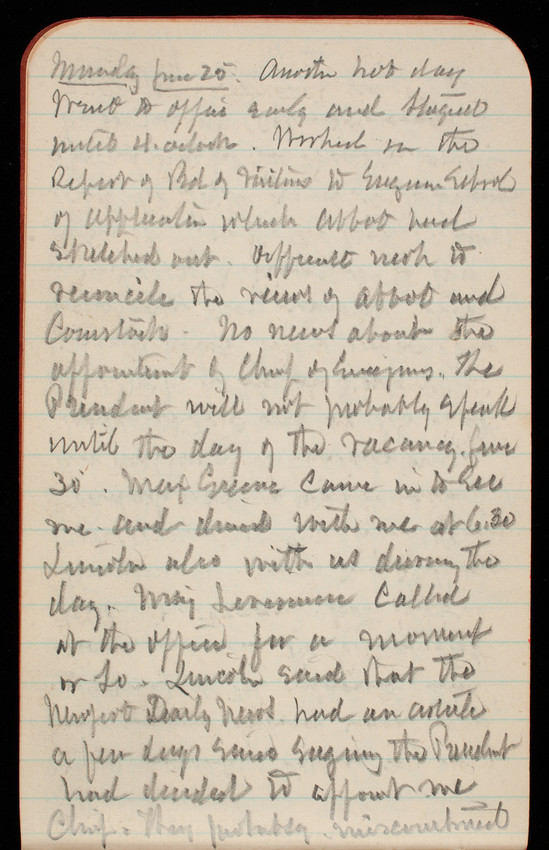 Monday June 25. Another hot day
Went to office early and stayed
until 4 oclock. Worked on the
Report of Bd of Visitors to Engineer School
of Application which Abbot had
sketched out. Difficult work to
reconcile the views of Abbot and
Comstock. No news about the
appointment of Chief of Engineers. The
President will not probably speak
until the day of the vacancy. June
30. Max Greene came in to see
me and dined with me at 6.30
Lincoln also with us during the
day. Called
at the office for a moment
or so. Lincoln said that the
Newport Daily News had an article
a few days since saying the President
had decided to appoint me
Chief. They probably misconstrued